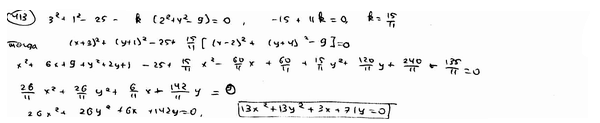 413 3² + 1² - 25 - k (2² + 4² - 9) = 0, -15 + 11k = 0, k = 15/11
тогда (x+3)² + (y+1)² - 25 + 15/11 [(x-2)² + (y+4)² - 9] = 0
x² + 6x + 9 + y² + 2y + 1 - 25 + 15/11 x² - 60/11 x + 60/11 + 15/11 y² + 120/11 y + 240/11 - 135/11 = 0
26/11 x² + 26/11 y² + 6/11 x + 142/11 y = 0
26x² + 26y² + 6x + 142y = 0, 13x² + 13y² + 3x + 71y = 0